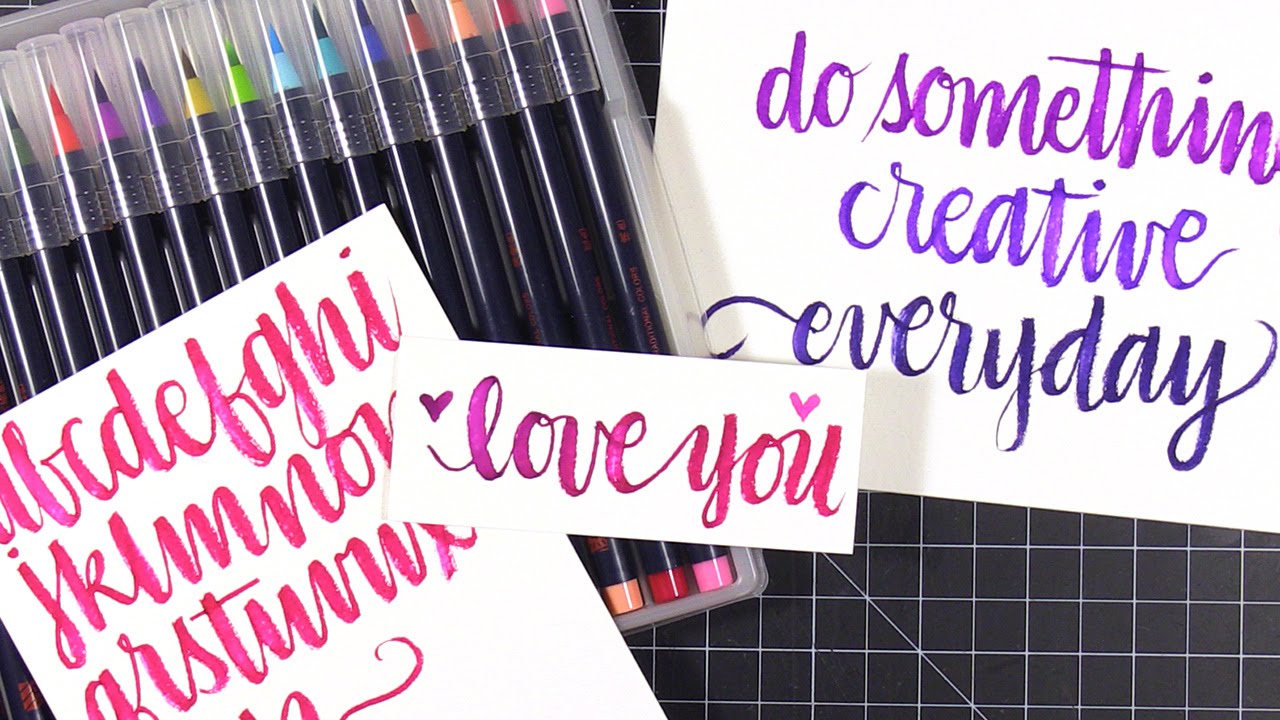 do somethin
creative
everyday
love you
abcdefghi
jklmnop
qrstuvwx
TRADITIONAL COLORS